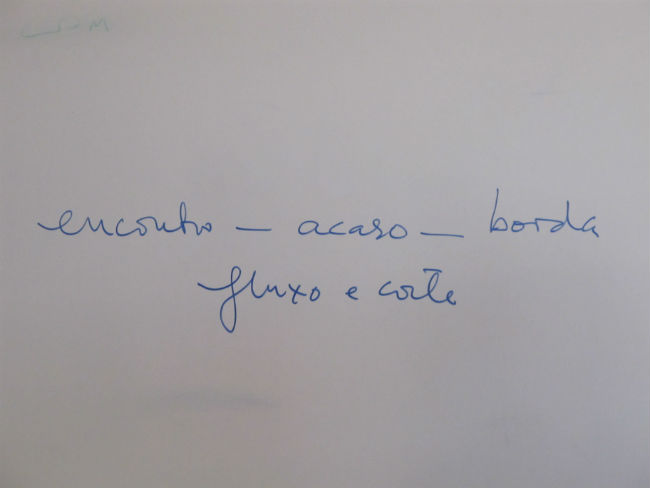 encontro — acaso — borda
fluxo e corte